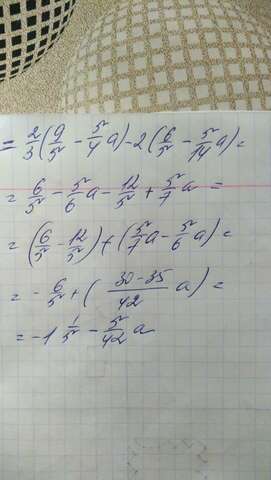 = 2/3 (9/5 - 5/4 a) - 2 (6/5 - 5/14 a) =
= 6/5 - 5/6 a - 12/5 + 5/7 a =
= (6/5 - 12/5) + (5/7 a - 5/6 a) =
= - 6/5 + (30-35/42 a) =
= -1 1/5 - 5/42 a